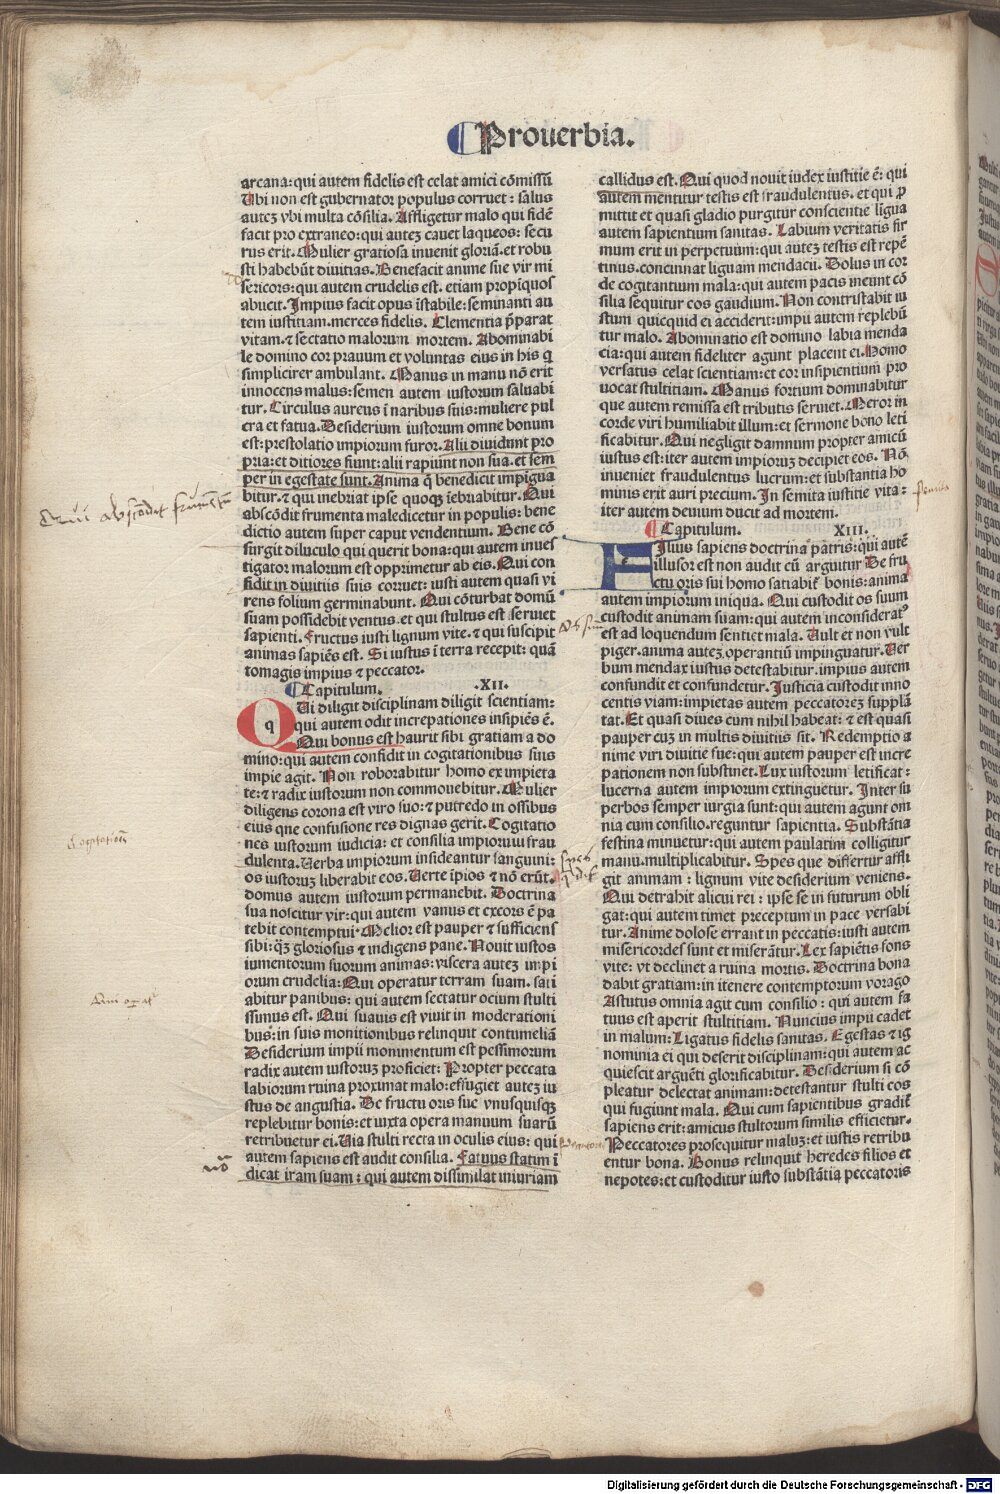 Prouerbia.
arcana: qui autem fidelis est celat amici cōmissū
Vbi non est gubernator populus corruet: salus
autez vbi multa cōsilia. Affligetur malo qui fidē
facit pro extraneo: qui autez cauet laqueos: secu
rus erit. Mulier gratiosa inuenit gloriā. et robu
sti habebūt diuitias. Benefacit anime sue vir mi
sericors: qui autem crudelis est. etiam propīquos
abiicit. Impius facit opus īstabile: seminanti au
tem iustitiam. merces fidelis. Clementia p̄parat
vitam. ⁊ sectatio malorum mortem. Abominabi
le domino cor prauum et voluntas eius in his q
simplicirer ambulant. Manus in manu nō erit
innocens malus: semen autem iustorum saluabi
tur. Circulus aureus ī naribus suis: muliere pul
cra et fatua. Desiderium iustorum omne bonum
est: prestolatio impiorum furor. Alii diuidunt pro
pria: et ditiores fiunt: alii rapiunt non sua. et sem
per in egestate sunt. Anima q̄ benedicit impīgua
bitur. ⁊ qui inebriat ipse quoqꝫ īebriabitur. Qui
abscōdit frumenta maledicetur in populis: bene
dictio autem super caput vendentium. Bene cō
surgit diluculo qui querit bona: qui autem inues
tigator malorum est opprimetur ab eis. Qui con
fidit in diuitiis suis corruet: iusti autem quasi vi
rens folium germinabunt. Qui cōturbat domū
suam possidebit ventus. et qui stultus est seruiet
sapienti. Fructus iusti lignum vite. ⁊ qui suscipit
animas sapiēs est. Si iustus ī terra recepit: quā
tomagis impius ⁊ peccator.
Capitulum. .XII.
QVi diligit disciplinam diligit scientiam:
qui autem odit increpationes insipiēs ē.
Qui bonus est haurit sibi gratiam a do
mino: qui autem confidit in cogitationibus suis
impie agit. Non roborabitur homo ex impieta
te: ⁊ radix iustorum non commouebitur. Mulier
diligens corona est viro suo: ⁊ putredo in ossibus
eius que confusione res dignas gerit. Cogitatio
nes iustorum iudicia: et consilia impiorum frau
dulenta. Verba impiorum insideantur sanguini:
os iustoruz liberabit eos. Verte īpios ⁊ nō erūt.
domus autem iustorum permanebit. Doctrina
sua noscitur vir: qui autem vanus et excors ē pa
tebit contemptui. Melior est pauper ⁊ sufficiens
sibi: q̄ꝫ gloriosus ⁊ indigens pane. Nouit iustos
iumentorum suorum animas: viscera autez impi
orum crudelia: Qui operatur terram suam. sati
abitur panibus: qui autem sectatur ocium stulti
ssimus est. Qui suauis est viuit in moderationi
bus: in suis monitionibus relinquit contumeliā
Desiderium impii monimentum est pessimorum
radix autem iustoruz proficiet: Propter peccata
labiorum ruina proximat malo: effugiet autez iu
stus de angustia. De fructu oris sue vnusquisqꝫ
replebitur bonis: et iuxta opera manuum suarū
retribuetur ei. Via stulti recta in oculis eius: qui
autem sapiens est audit consilia. Fatuus statim ī
dicat iram suam: qui autem dissimilat iniuriam
callidus est. Qui quod nouit iudex iustitie ē: qui
autem mentitur testis est fraudulentus. et qui p̄
mittit et quasi gladio purgitur conscientie ligua
autem sapientium sanitas. Labium veritatis fir
mum erit in perpetuum: qui autez testis est repē
tinus. concinnat liguam mendacii. Dolus in cor
de cogitantium mala: qui autem pacis ineunt cō
silia sequitur eos gaudium. Non contristabit iu
stum quicquid ei acciderit: impii autem replebū
tur malo. Abominatio est domino labia menda
cia: qui autem fideliter agunt placent ei. Homo
versatus celat scientiam: et cor insipientium pro
uocat stultitiam. Manus fortium dominabitur
que autem remissa est tributis seruiet. Meror in
corde viri humiliabit illum: et sermone bono leti
ficabitur. Qui negligit damnum propter amicū
iustus est: iter autem impioruz decipiet eos. Nō
inueniet fraudulentus lucrum: et substantia ho
minis erit auri precium. In semita iustitie vita:
iter autem deuium ducit ad mortem.
Capitulum. XIII.
Filius sapiens doctrina patris: qui autē
illusor est non audit cū arguitur De fru
ctu oris sui homo satiabit̄ bonis: anima
autem impiorum iniqua. Qui custodit os suum
custodit animam suam: qui autem inconsideratꝰ
est ad loquendum sentiet mala. Vult et non vult
piger. anima autez operantiū impinguatur. Ver
bum mendax iustus detestabitur. impius autem
confundit et confundetur. Justicia custodit inno
centis viam: impietas autem peccatorez supplā
tat. Et quasi diues cum nihil habeat: ⁊ est quasi
pauper cuz in multis diuitiis sit. Redemptio a
nime viri diuitie sue: qui autem pauper est incre
pationem non sustinet. Lux iustorum letificat:
lucerna autem impiorum extinguetur. Inter su
perbos semper iurgia sunt: qui autem agunt om
nia cum consilio. reguntur sapientia. Substātia
festina minuetur: qui autem paulatim colligitur
manu. multiplicabitur. Spes que differtur affli
git animam: lignum vite desiderium veniens.
Qui detrahit alicui rei: ipse se in futurum obli
gat: qui autem timet preceptum in pace versabi
tur. Anime dolose errant in peccatis: iusti autem
misericordes sunt et miserātur. Lex sapiētis fons
vite: vt declinet a ruina mortis. Doctrina bona
dabit gratiam: in itenere contemptorum vorago
Astutus omnia agit cum consilio: qui autem fa
tuus est aperit stultitiam. Nuncius impii cadet
in malum: Ligatus fidelis sanitas. Egestas ⁊ ig
nominia ei qui deserit disciplinam: qui autem ac
quiescit arguēti glorificabitur. Desiderium si cō
pleatur delectat animam: detestantur stulti eos
qui fugiunt mala. Qui cum sapientibus gradit̄
sapiens erit: amicus stultorum similis efficietur.
Peccatores prosequitur maluz: et iustis retribu
entur bona. Bonus relinquit heredes filios et
nepotes: et custoditur iusto substātia peccatoris
Digitalisierung gefördert durch die Deutsche Forschungsgemeinschaft - DFG